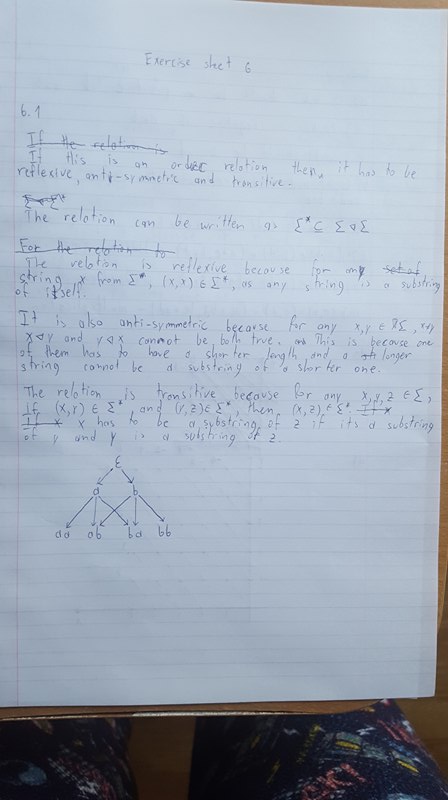 Exercise sheet 6
6.1
If the relation is
If this is an order relation then, it has to be
reflexive, anti-symmetric and transitive.
The relation can be written as Σ* ⊆ Σ ⊲ Σ
For the relation to
The relation is reflexive because for any set of
string x from Σ*, (x,x) ∈ Σ*, as any string is a substring
of itself.
It is also anti-symmetric because for any x,y ∈ Σ, x≠y
x ⊲ y and y ⊲ x cannot be both true. This is because one
of them has to have a shorter length and a longer
string cannot be a substring of a shorter one.
The relation is transitive because for any x,y,z ∈ Σ,
if (x,y) ∈ Σ* and (y,z) ∈ Σ*, then (x,z) ∈ Σ* If x
If x x has to be a substring of z if its a substring
of y and y is a substring of z.
ε
a b
aa ab ba bb